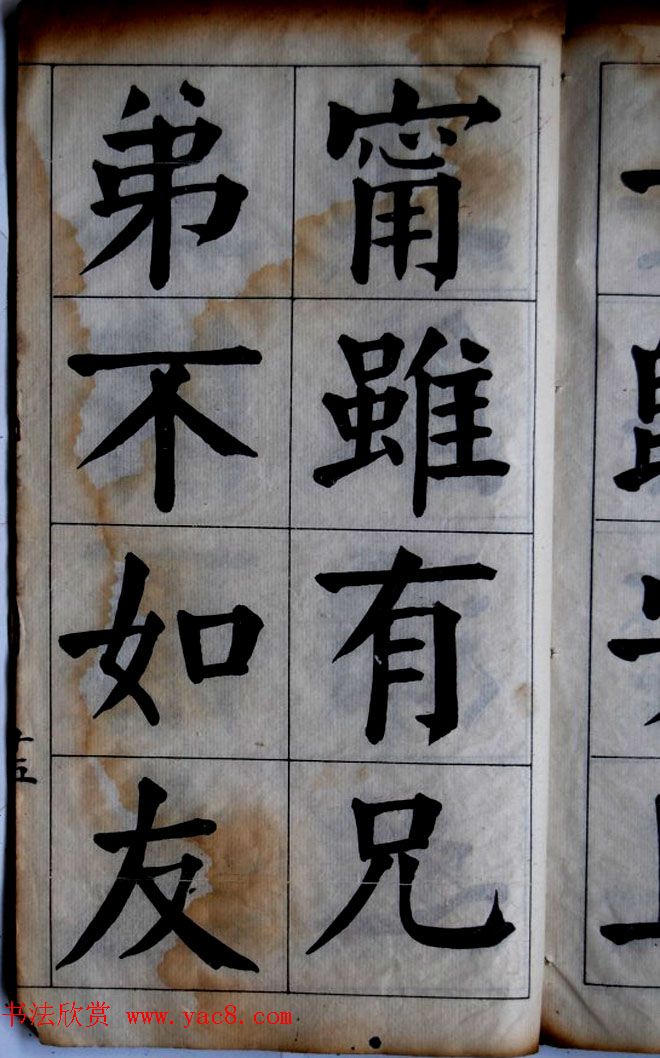 甯雖有兄
弟不如友
书法欣赏 www.yac8.com